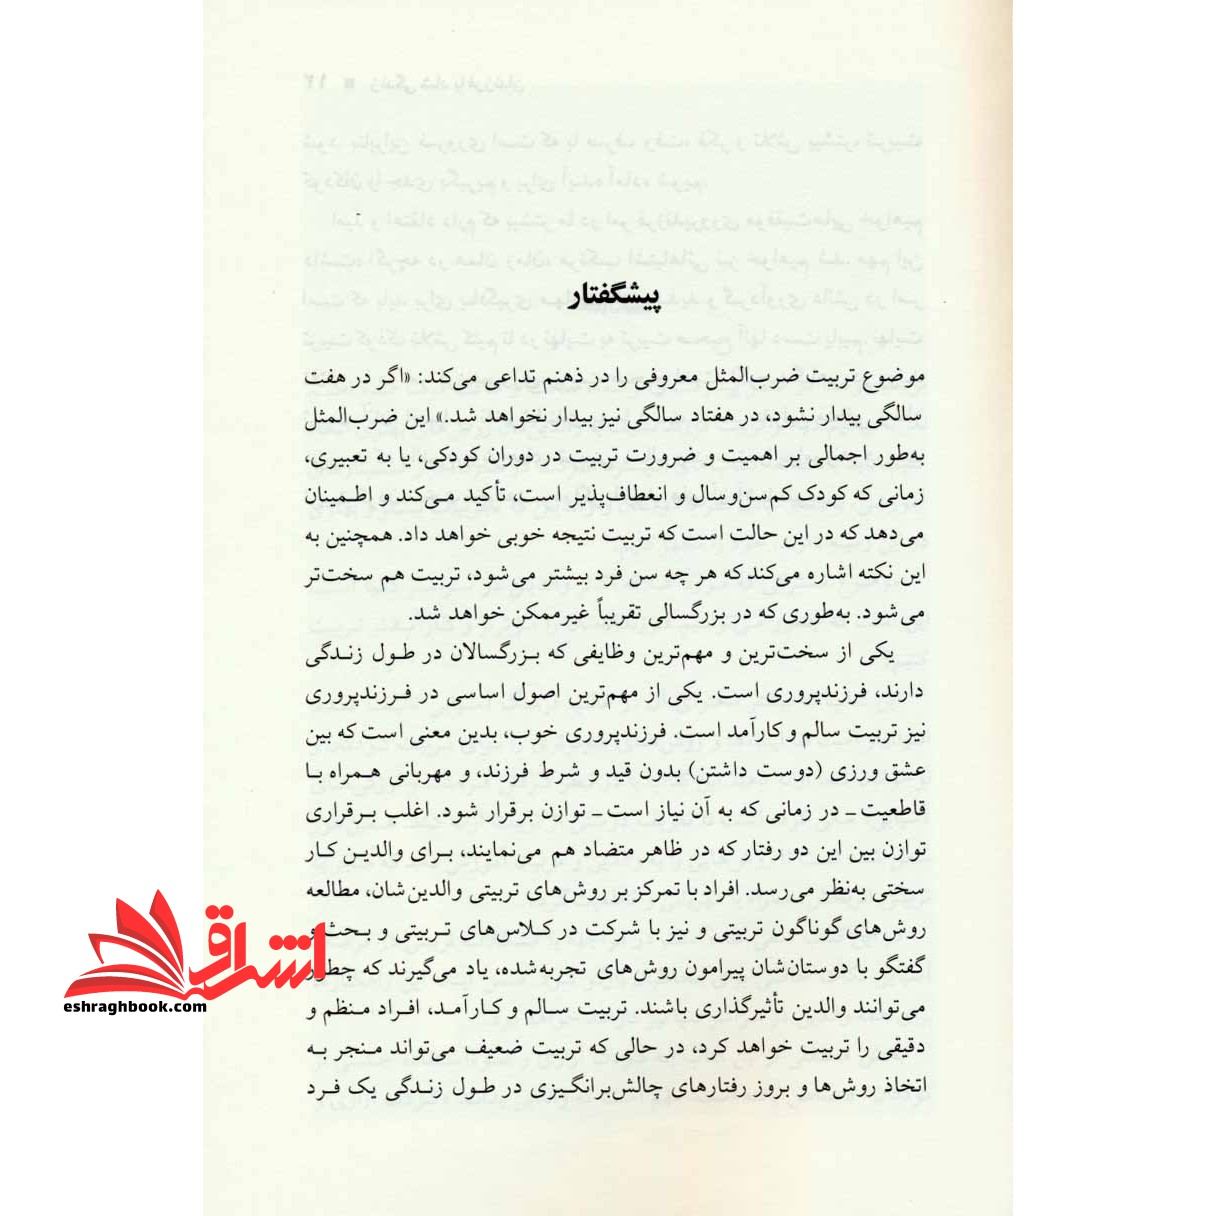 پیشگفتار
موضوع تربیت ضرب‌المثل معروفی را در ذهنم تداعی می‌کند: «اگر در هفت
سالگی بیدار نشود، در هفتاد سالگی نیز بیدار نخواهد شد.» این ضرب‌المثل
به‌طور اجمالی بر اهمیت و ضرورت تربیت در دوران کودکی، یا به تعبیری،
زمانی که کودک کم‌سن‌وسال و انعطاف‌پذیر است، تأکید می‌کند و اطمینان
می‌دهد که در این حالت است که تربیت نتیجه خوبی خواهد داد. همچنین به
این نکته اشاره می‌کند که هر چه سن فرد بیشتر می‌شود، تربیت هم سخت‌تر
می‌شود. به‌طوری که در بزرگسالی تقریباً غیرممکن خواهد شد.
یکی از سخت‌ترین و مهم‌ترین وظایفی که بزرگسالان در طول زندگی
دارند، فرزندپروری است. یکی از مهم‌ترین اصول اساسی در فرزندپروری
نیز تربیت سالم و کارآمد است. فرزندپروری خوب، بدین معنی است که بین
عشق ورزی (دوست داشتن) بدون قید و شرط فرزند، و مهربانی همراه با
قاطعیت ـ در زمانی که به آن نیاز است ـ توازن برقرار شود. اغلب برقراری
توازن بین این دو رفتار که در ظاهر متضاد هم می‌نمایند، برای والدین کار
سختی به‌نظر می‌رسد. افراد با تمرکز بر روش‌های تربیتی والدین‌شان، مطالعه
روش‌های گوناگون تربیتی و نیز با شرکت در کلاس‌های تربیتی و بحث و
گفتگو با دوستان‌شان پیرامون روش‌های تجربه‌شده، یاد می‌گیرند که چطور
می‌توانند والدین تأثیرگذاری باشند. تربیت سالم و کارآمد، افراد منظم و
دقیقی را تربیت خواهد کرد، در حالی که تربیت ضعیف می‌تواند منجر به
اتخاذ روش‌ها و بروز رفتارهای چالش‌برانگیزی در طول زندگی یک فرد
اشراق
eshraghbook.com